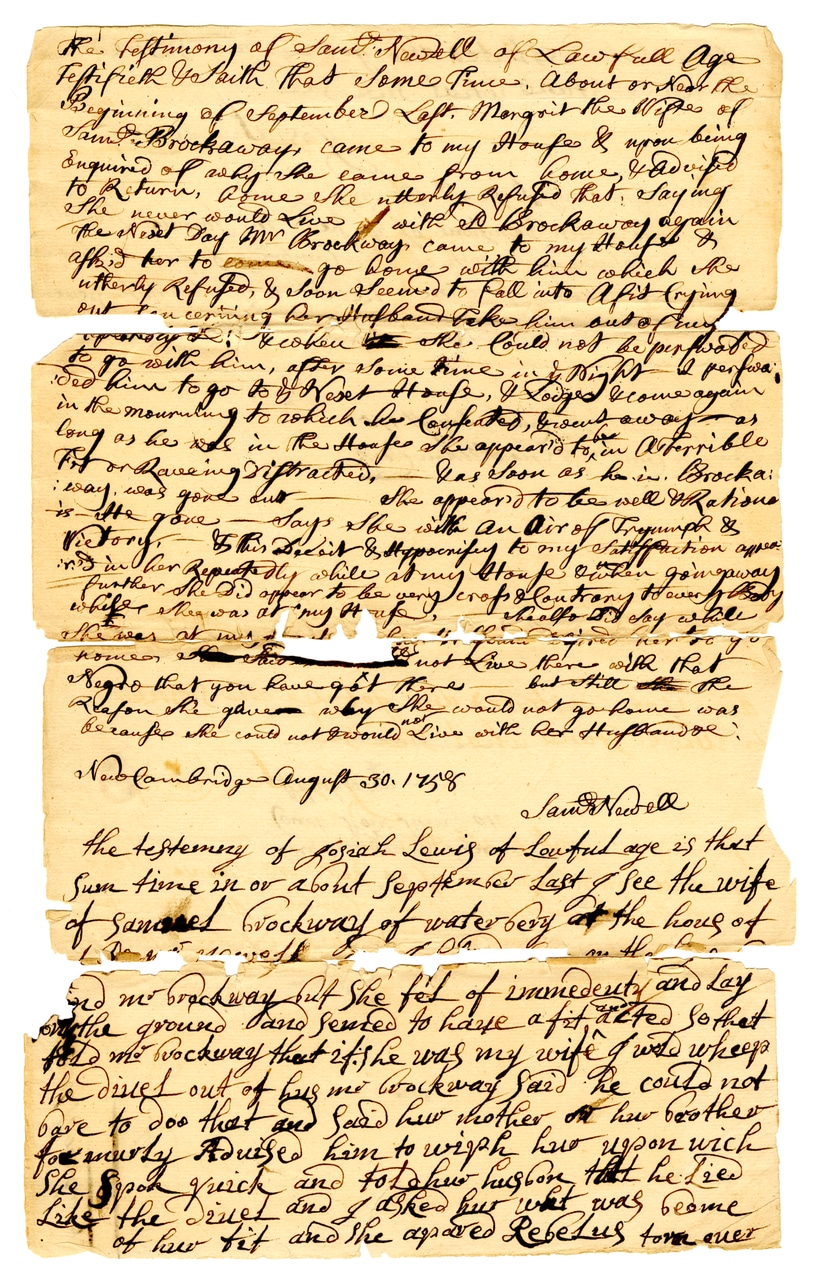 The Testimony of Sam.ll Newell of Lawfull Age
Testifieth & Saith that some Time, About or Near the
Beginning of September Last, Margrit the Wife of
Sam.ll Brockaway, came to my House & upon being
Enquired of why she came from home, & Advised
to Return, home she utterly Refused that, Saying
She never would Live with Brockaway again
the Next Day Mr Brockway came to my House &
ask'd her to go home with him which she
utterly Refused, & Soon Seem'd to fall into A fit Crying
out Concerning her Husband Take him out of my
& when she Could not be perswaded
to go with him, after some time in ye Night I perswa:
:ded him to go to ye Next House, & Lodge & come again
in the mourning to which he Consented, & went away — as
long as he was in the House She appear'd to be in A terrible
Fit or Raveing Distracted, — & as Soon as he i.e. Brocka:
:way, was gone out — She appear'd to be well & Rationa
is He gone — Says She with An Air of Tryumph &
Victory, — & this Deceit & Hypocrisy to my Satisffaction appea
:r'd in her Repeatedly while at my House & when going away
further she Did appear to be very cross & Contrary to every Body
while she was at my House, — She also Did say while
She was at my her to go
home, not Live there with that
Negro that you have got there — but still the
Reason she gave why She would not go home was
because she could not & would not Live with her Husband
New Cambridge August 30. 1758
Sam.ll Newell
the testemny of Josiah Lewis of Lawful age is that
sum time in or about September Last I see the wife
of Samuel brockway of waterbery at the hous of
and mr brockway but she fel of immedenty and Lay
on the ground and semed to have a fit and acted so that
told mr brockway that if she was my wife I wold wheep
the divel out of hus mr brockway Said he could not
bare to doo that and said hur mother or hur brother
formurly Advised him to wiph hur upon wich
She spok quick and told hur husbon that he Lied
Like the divel and I asked hur what was become
of hur fit and she apared Rebelus torn over